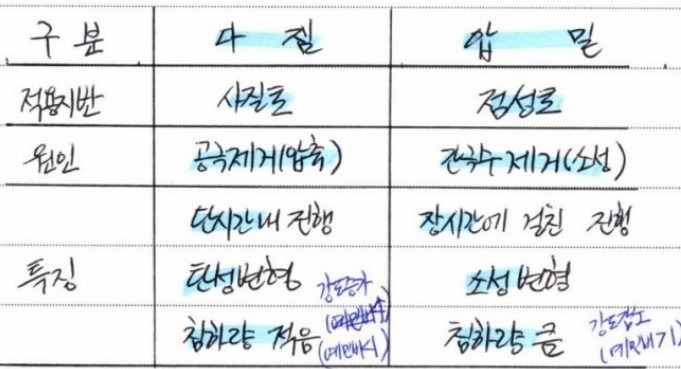 구분 다짐 압밀
적용지반 사질토 점성토
원인 공극제거(압축) 간극수제거(소성)
단시간내 진행 장시간에 걸친 진행
특징 탄성변형 소성변형
강도증가
침하량 적음 침하량 큼 강도감소